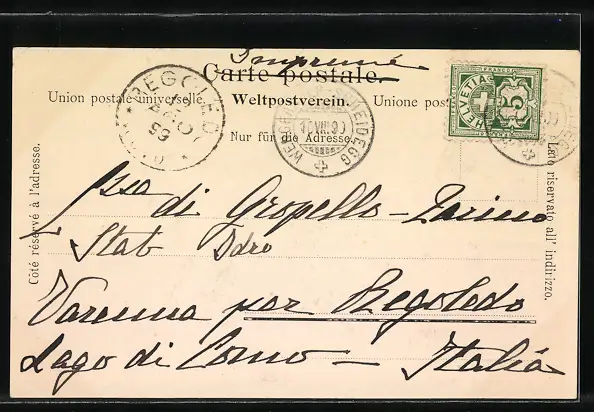 Imprimé
Carte postale.
Union postale universelle. Weltpostverein. Unione postale
Nur für die Adresse.
REGOLEDO
WENGERNALP-SCHEIDEGG
FRANCO
HELVETIA 5
Côté réservé à l'adresse.
Lato riservato all' indirizzo.
di Gropello - Tarino
Stab Idro
Varenna per Regoledo
Lago di Como - Italia